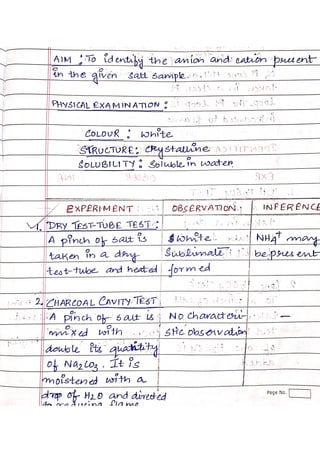 AIM : To identify the anion and cation present
in the given salt sample.
PHYSICAL EXAMINATION :
COLOUR : White
STRUCTURE : Crystalline
SOLUBILITY : Soluble in water
EXPERIMENT OBSERVATION INFERENCE
1. DRY TEST-TUBE TEST :
A pinch of salt is White NH4+ may
taken in a dry Sublimate be present
test-tube and heated formed
2. CHARCOAL CAVITY TEST
A pinch of salt is No Character- —
mixed with istic observation
double its quantity
of Na2CO3. It is
moistened with a
drop of H2O and directed
Page No.